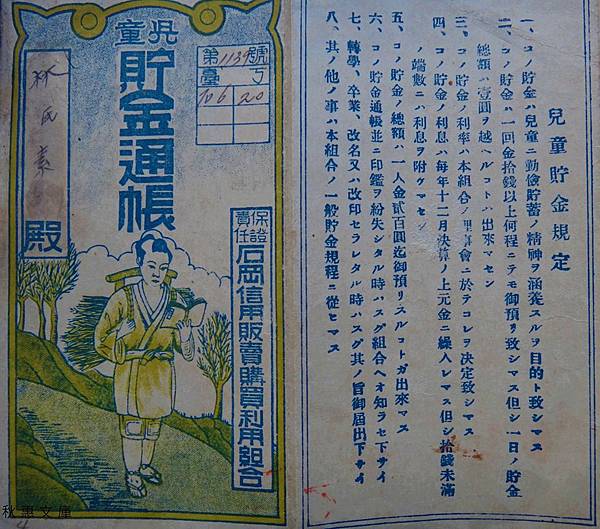 兒童
貯金通帳
第1134號
臺 丁
10 6 20
林氏素
殿
保證
責任
石岡信用販賣購買利用組合
兒童貯金規定
一、コノ貯金ハ兒童ニ勤儉貯蓄ノ精神ヲ涵養スルヲ目的ト致シマス
二、コノ貯金ハ一回金拾錢以上何程ニテモ御預リ致シマス但シ一日ノ貯金
總額ハ壹圓ヲ越ヘルコトハ出來マセン
三、コノ貯金ノ利率ハ本組合ノ理事會ニ於テコレヲ決定致シマス
四、コノ貯金ノ利息ハ每年十二月決算ノ上元金ニ繰入レマス但シ拾錢未滿
ノ端數ニハ利息ヲ附ケマセン
五、コノ貯金ノ總額ハ一人金貳百圓迄御預リスルコトガ出來マス
六、コノ貯金通帳並ニ印鑑ヲ紛失シタル時ハスグ組合ヘオ知ラセ下サイ
七、轉學、卒業、改名又ハ改印セラレタル時ハスグ其ノ旨御屆出下サイ
八、其ノ他ノ事ハ本組合ノ一般貯金規程ニ從ヒマス
秋惠文庫